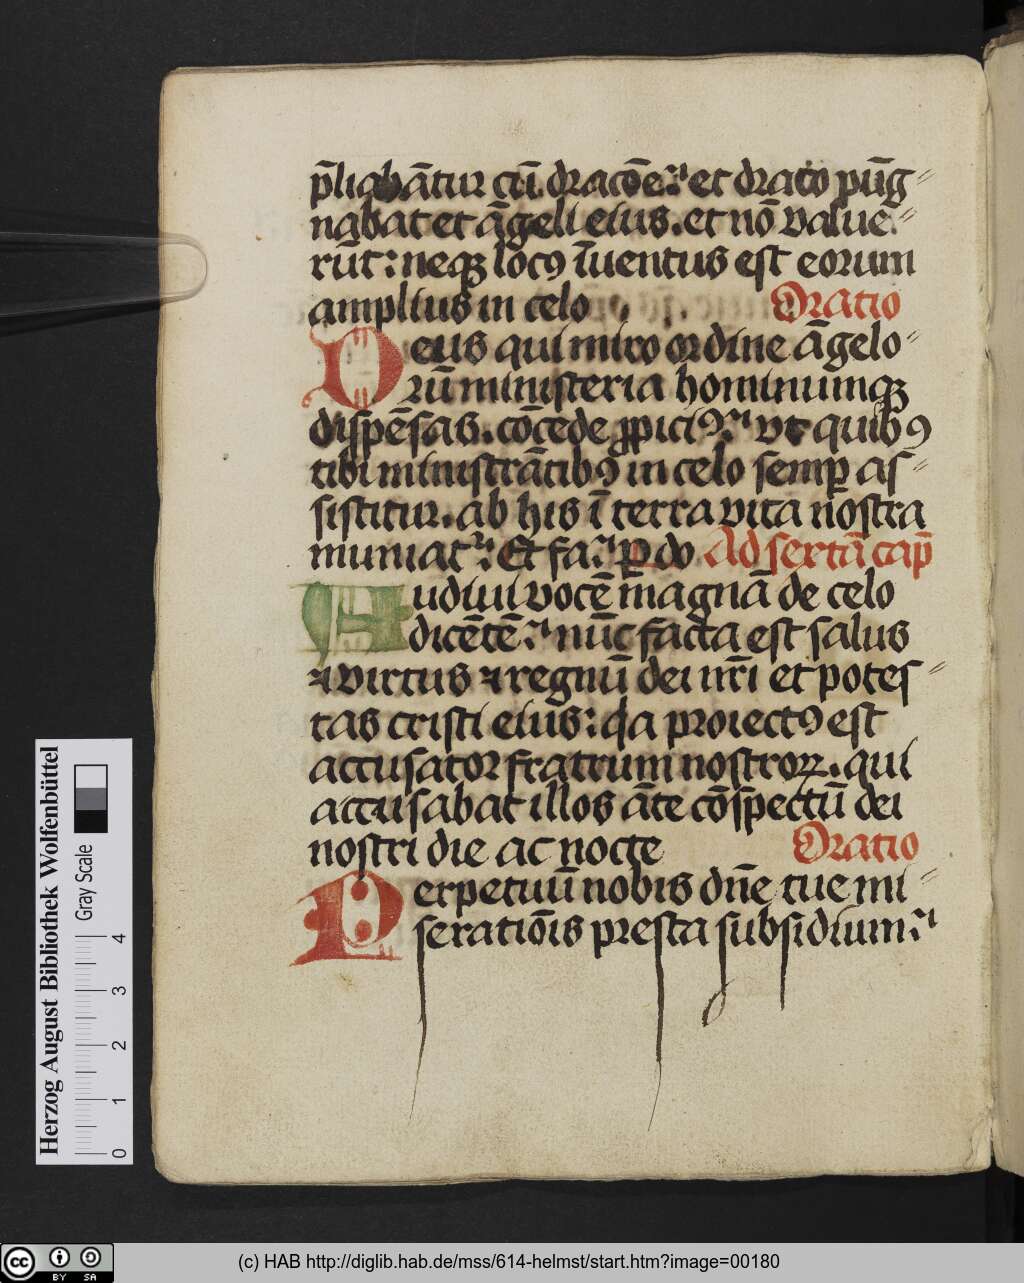 p̄liabāt̄ur cū dracōe: et draco pūg⸗
nabat et āgeli eius. et nō value⸗
rūt: neqꝫ locꝯ īuentus est eorum
amplius in celo Oratio
Deus qui miro ordine āgelo⸗
rū ministeria hominumqꝫ
dispēsas. cōcede ꝓpiciꝯ: vt quibꝯ
tibi ministrātibꝯ in celo semꝑ as⸗
sistitur. ab his ī terra vita nostra
muniat᷑: Et fa: ꝑ do Ad sextā cap̄
Audiui vocē magnā de celo
dicētē: nūc facta est salus
⁊ virtus ⁊ regnū dei nr̄i et potes⸗
tas cristi eius: qa proiectꝯ est
accusator fratrum nostroꝝ. qui
accusabat illos āte cōspectū dei
nostri die ac nocte Oratio
Perpetuū nobis dn̄e tue mi⸗
seratiōis presta subsidium:
Herzog August Bibliothek Wolfenbüttel
Gray Scale
0 1 2 3 4
cc BY SA
(c) HAB http://diglib.hab.de/mss/614-helmst/start.htm?image=00180